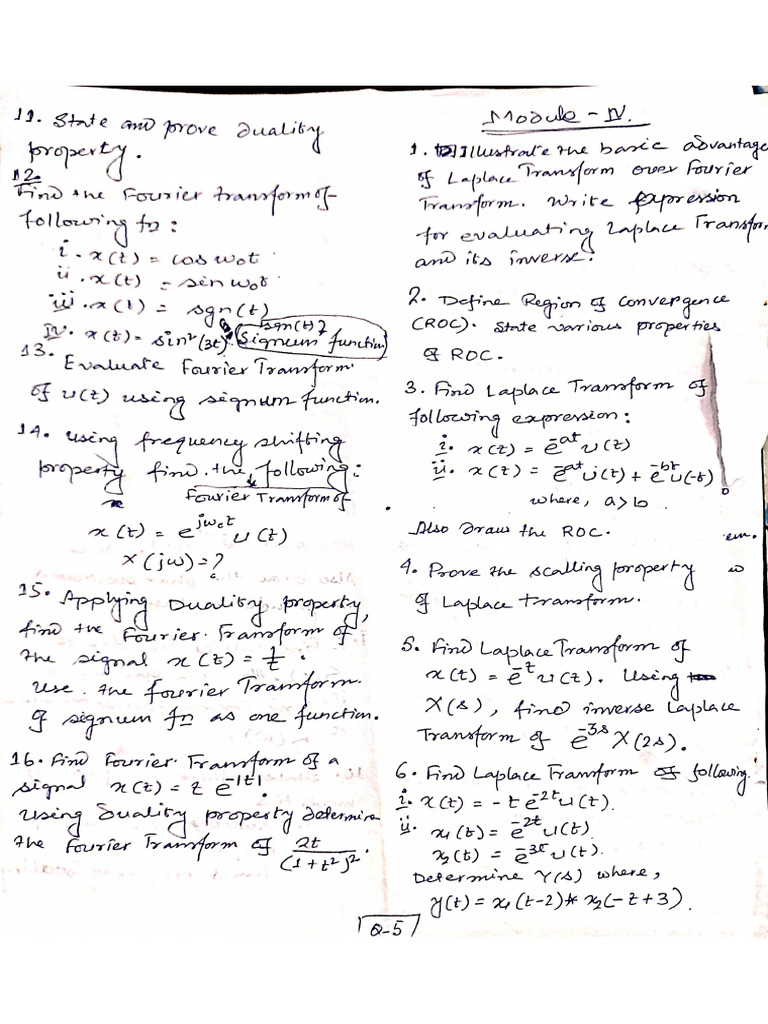 11. State and prove duality
property.
12.
Find the Fourier transform of
following fn:
i. x(t) = cos ω₀t
ii. x(t) = sin ω₀t
iii. x(t) = sgn(t)
sgn(t)?
iv. x(t) = sin²(3t) (Signum function)
13. Evaluate Fourier Transform
of u(t) using signum function.
14. Using frequency shifting
property find the following:
Fourier Transform of
x(t) = e^{jω₀t} u(t)
X(jω) = ?
15. Applying Duality property,
find the Fourier Transform of
the signal x(t) = 1/t.
Use the fourier Transform
of signum fn as one function.
16. Find Fourier Transform of a
signal x(t) = t e^{-|t|}.
Using Duality property determine
the Fourier Transform of 2t/(1+t²)².
Module - IV.
1. Illustrate the basic advantage
of Laplace Transform over Fourier
Transform. Write expression
for evaluating Laplace Transform
and its inverse.
2. Define Region of convergence
(ROC). State various properties
of ROC.
3. Find Laplace Transform of
following expression:
i. x(t) = e^{-at} u(t)
ii. x(t) = e^{-at} u(t) + e^{-bt} u(-t)
where, a>b.
Also Draw the ROC.
em.
4. Prove the scalling property
of Laplace transform.
5. Find Laplace Transform of
x(t) = e^{-t} u(t). Using
X(s), find inverse Laplace
Transform of e^{-3s} X(2s).
6. Find Laplace Transform of following.
i. x(t) = -t e^{-2t} u(t).
ii. x₁(t) = e^{-2t} u(t).
x₂(t) = e^{-3t} u(t).
Determine Y(s) where,
y(t) = x₁(t-2) * x₂(-t+3).
Q-5